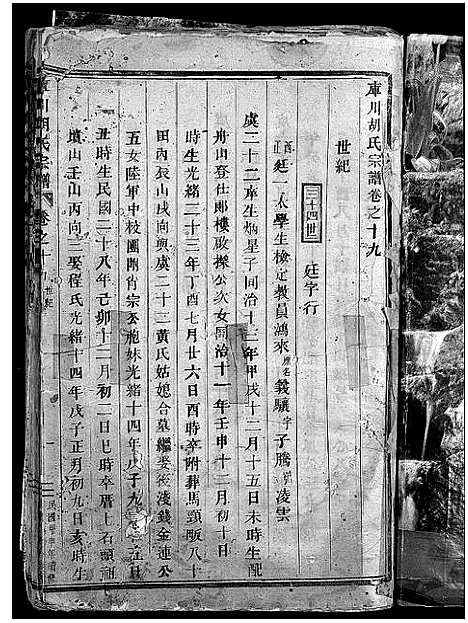 庫川胡氏宗譜卷之十九
世紀
三十四世 廷字行
虞二十二 廷一 太學生檢定教員鴻來 應名 義驤 字 子騰 號 凌雲
庠生炳星子同治十三年甲戌十二月十五日未時生配
舟山登仕郎樓啟操公次女同治十一年壬申十二月初十日
時生光緒三十三年丁酉七月廿六日酉時卒附葬馬頸畈八十
田內辰山戌向與虞二十二黃氏姑媳合墓繼娶後淺錢金連公
五女陸軍中校團附宗公胞妹光緒十四年戊子九
丑時生民國二十八年己卯十二月初二日戌時卒厝上石頭
墳山壬山丙向三娶程氏光緒十四年戊子正月初九日亥時生
庫川胡氏宗譜 卷之十九 世紀